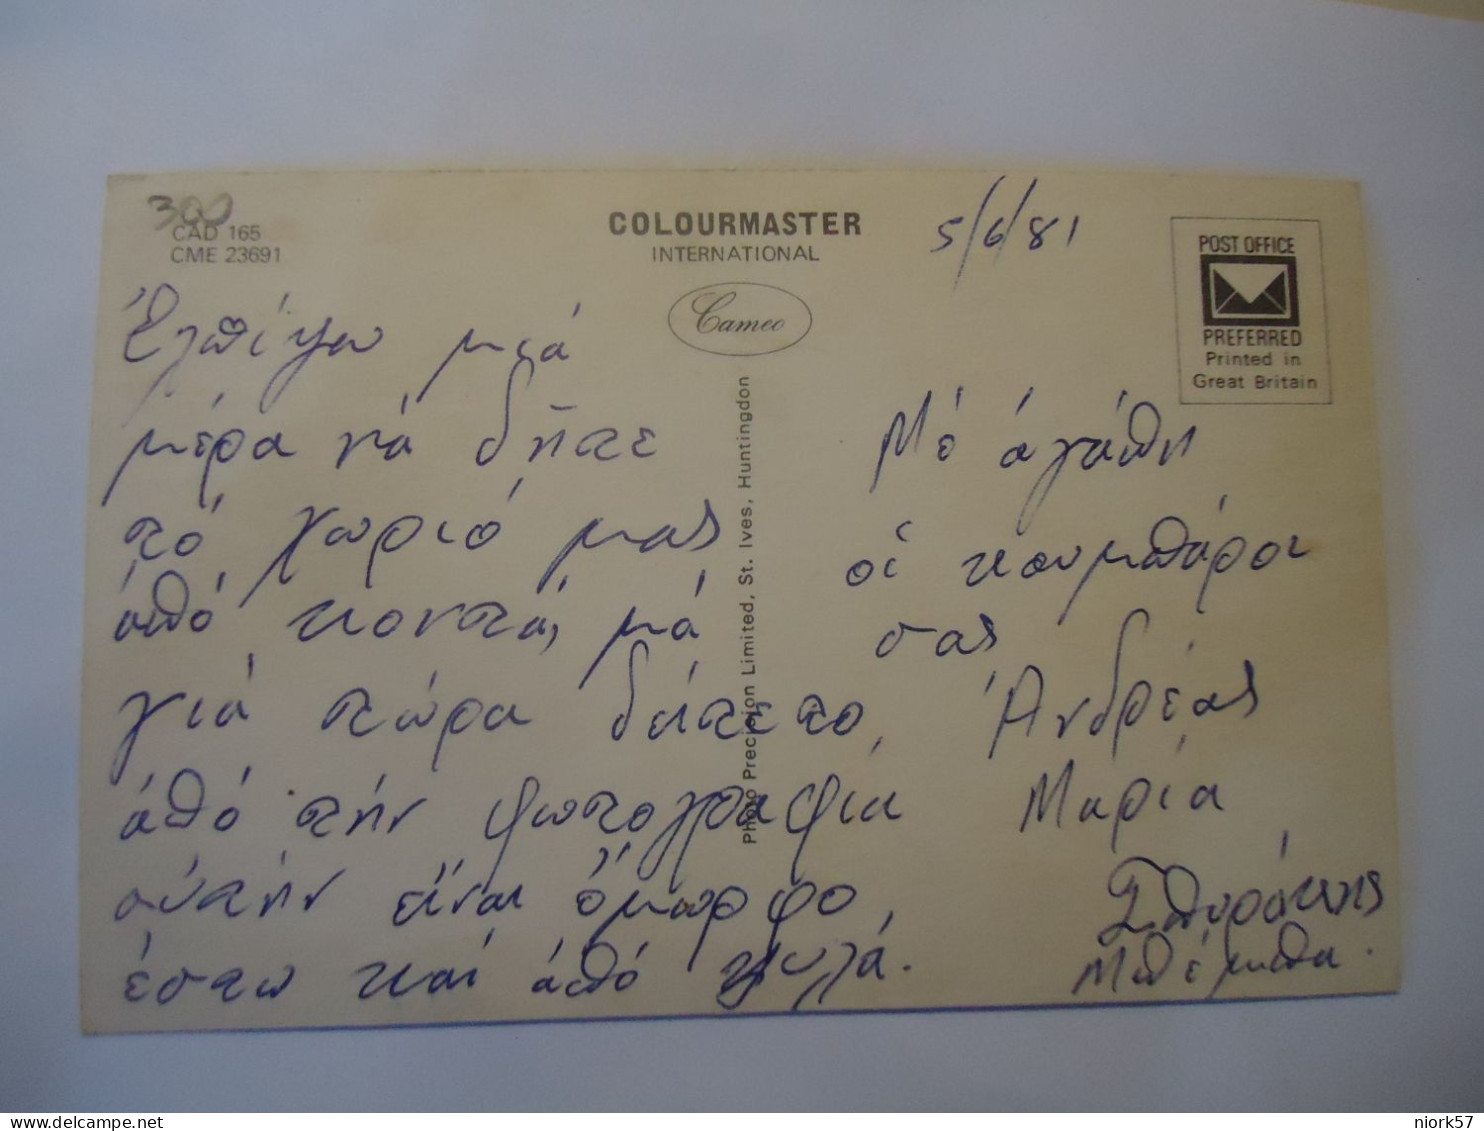 300
CAD 165
CME 23691
COLOURMASTER
INTERNATIONAL
Cameo
5/6/81
POST OFFICE
PREFERRED
Printed in
Great Britain
Photo Precision Limited, St. Ives, Huntingdon
Ἐλπίζω μιά
μέρα νά δῆτε
τό χωριό μας
ἀπό κοντά, μά
γιά τώρα δέστε το,
ἀπό τήν φωτογραφία
αὐτήν εἶναι ὄμορφο,
ἔστω καί ἀπό ψηλά.
Μέ ἀγάπη
οἱ κουμπάροι
σας
Ἀνδρέας
Μαρία
Σπυράκης
Μπέμπα.
niork57